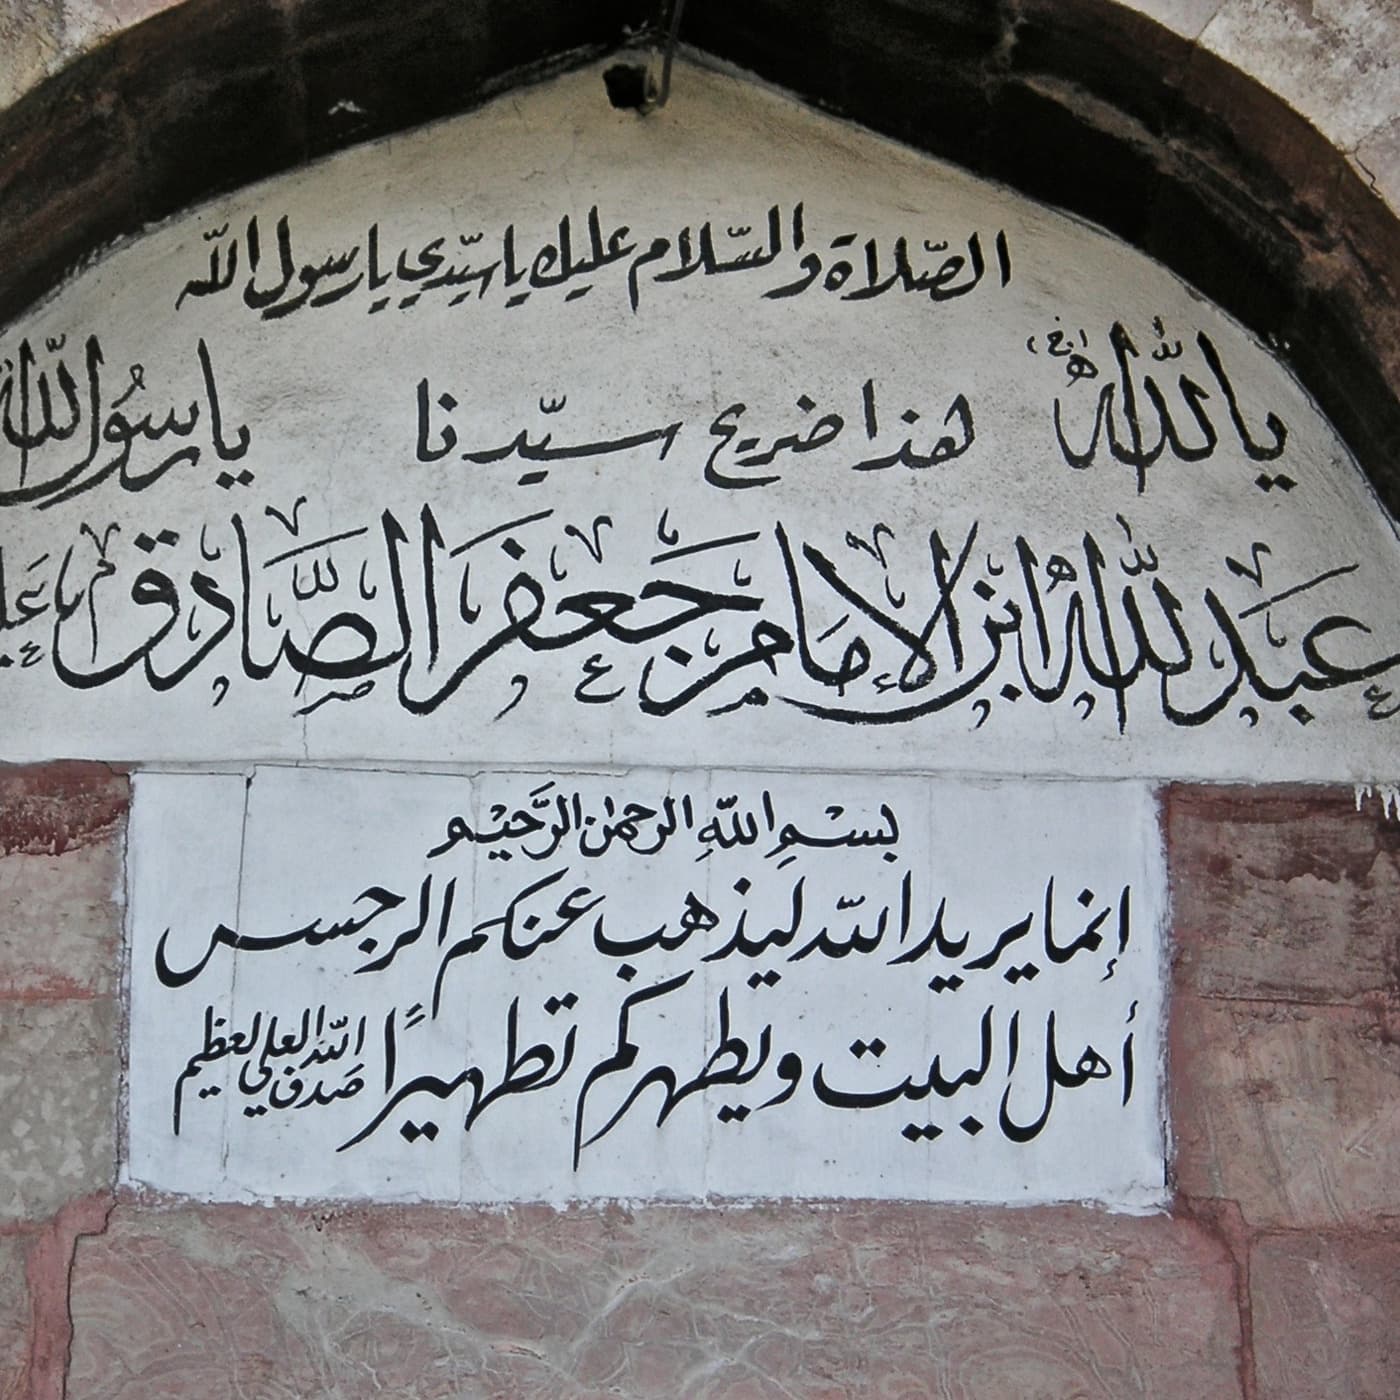 الصّلاة والسّلام عليك يا سيّدي يا رسول اللّه
يا اللّه هذا ضريح سيّدنا يا رسُول اللّه
عَبدُ اللّهُ ابن الإِمَام جَعفَر الصَّادِق
بسْمِ اللّهِ الرحمٰن الرَّحيْم
إنما يريد اللّه ليذهب عنكم الرجس
أهل البيت ويطهركم تطهيرًا صدق اللّه العلي العظيم